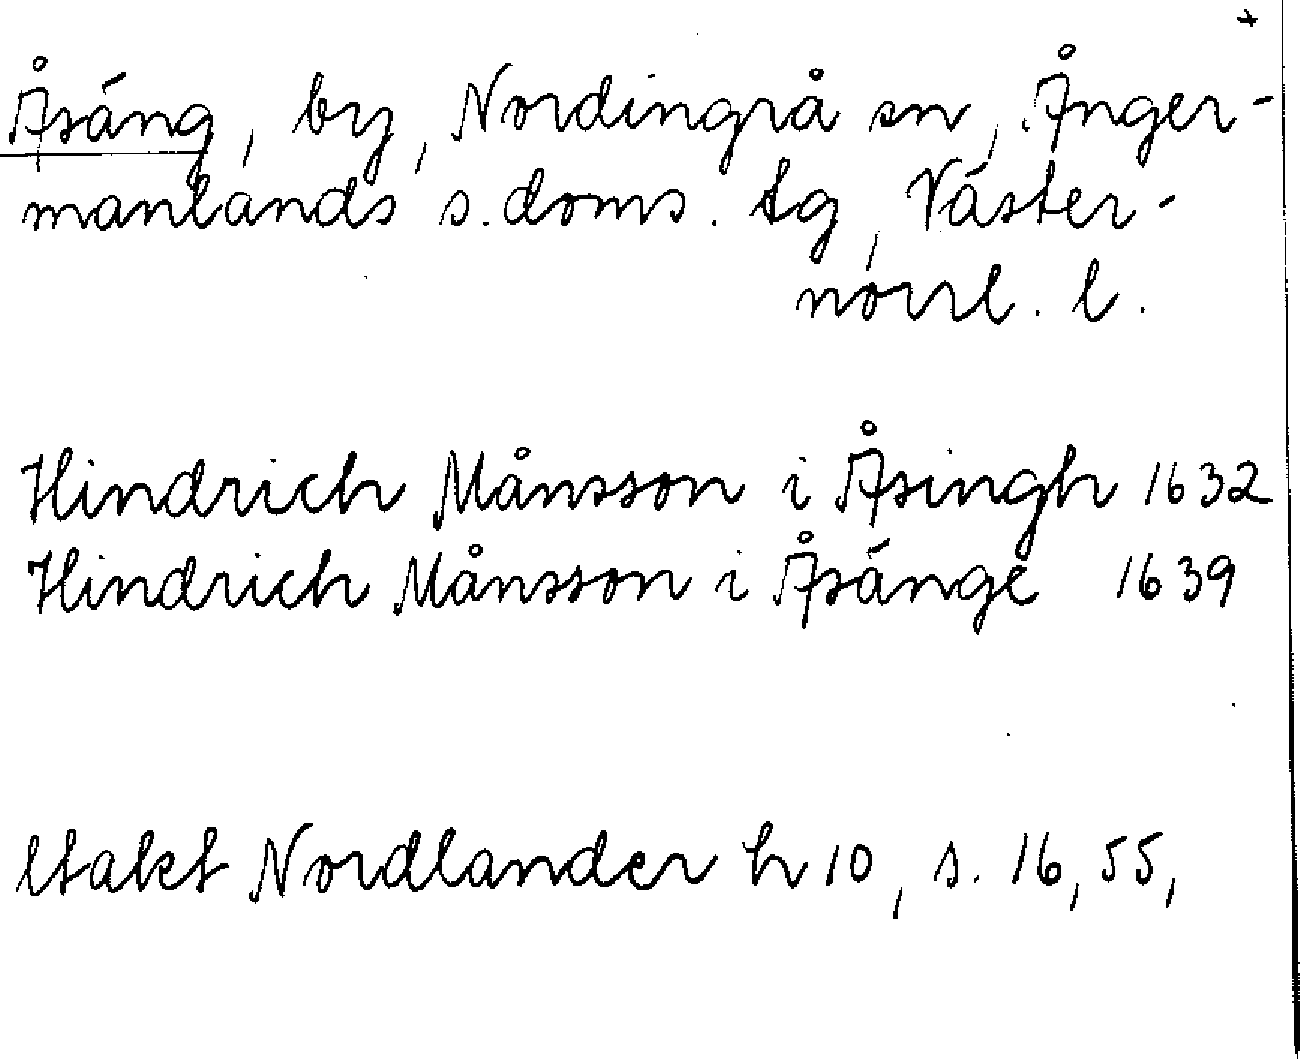 Åsäng, by, Nordingrå sn, Ånger-
manlands s. doms. tg, Väster-
norrl. l.
Hindrich Månsson i Åsingh 1632
Hindrich Månsson i Åsänge 1639
Nordlander h 10, s. 16, 55,